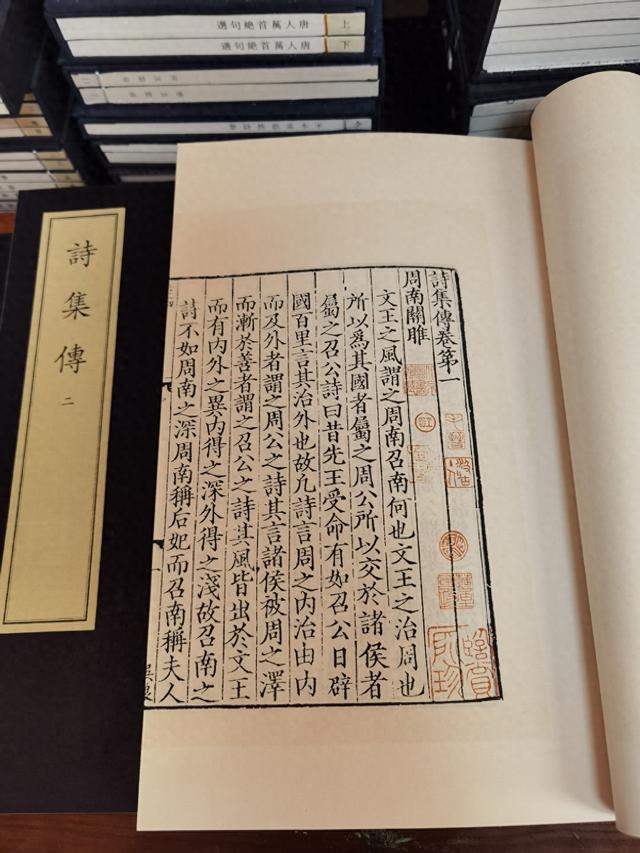 唐人萬首絶句選
上
唐人萬首絶句選
下
詩集傳
二
詩集傳卷第一
周南關雎
文王之風謂之周南召南何也文王之治周也
所以爲其國者屬之周公所以交於諸侯者
屬之召公詩曰昔先王受命有如召公日辟
國百里言其治外也故凡詩言周之内治由内
而及外者謂之周公之詩其言諸侯被周之澤
而漸於善者謂之召公之詩其風皆出於文王
而有内外之異内得之深外得之淺故召南之
詩不如周南之深周南稱后妃而召南稱夫人